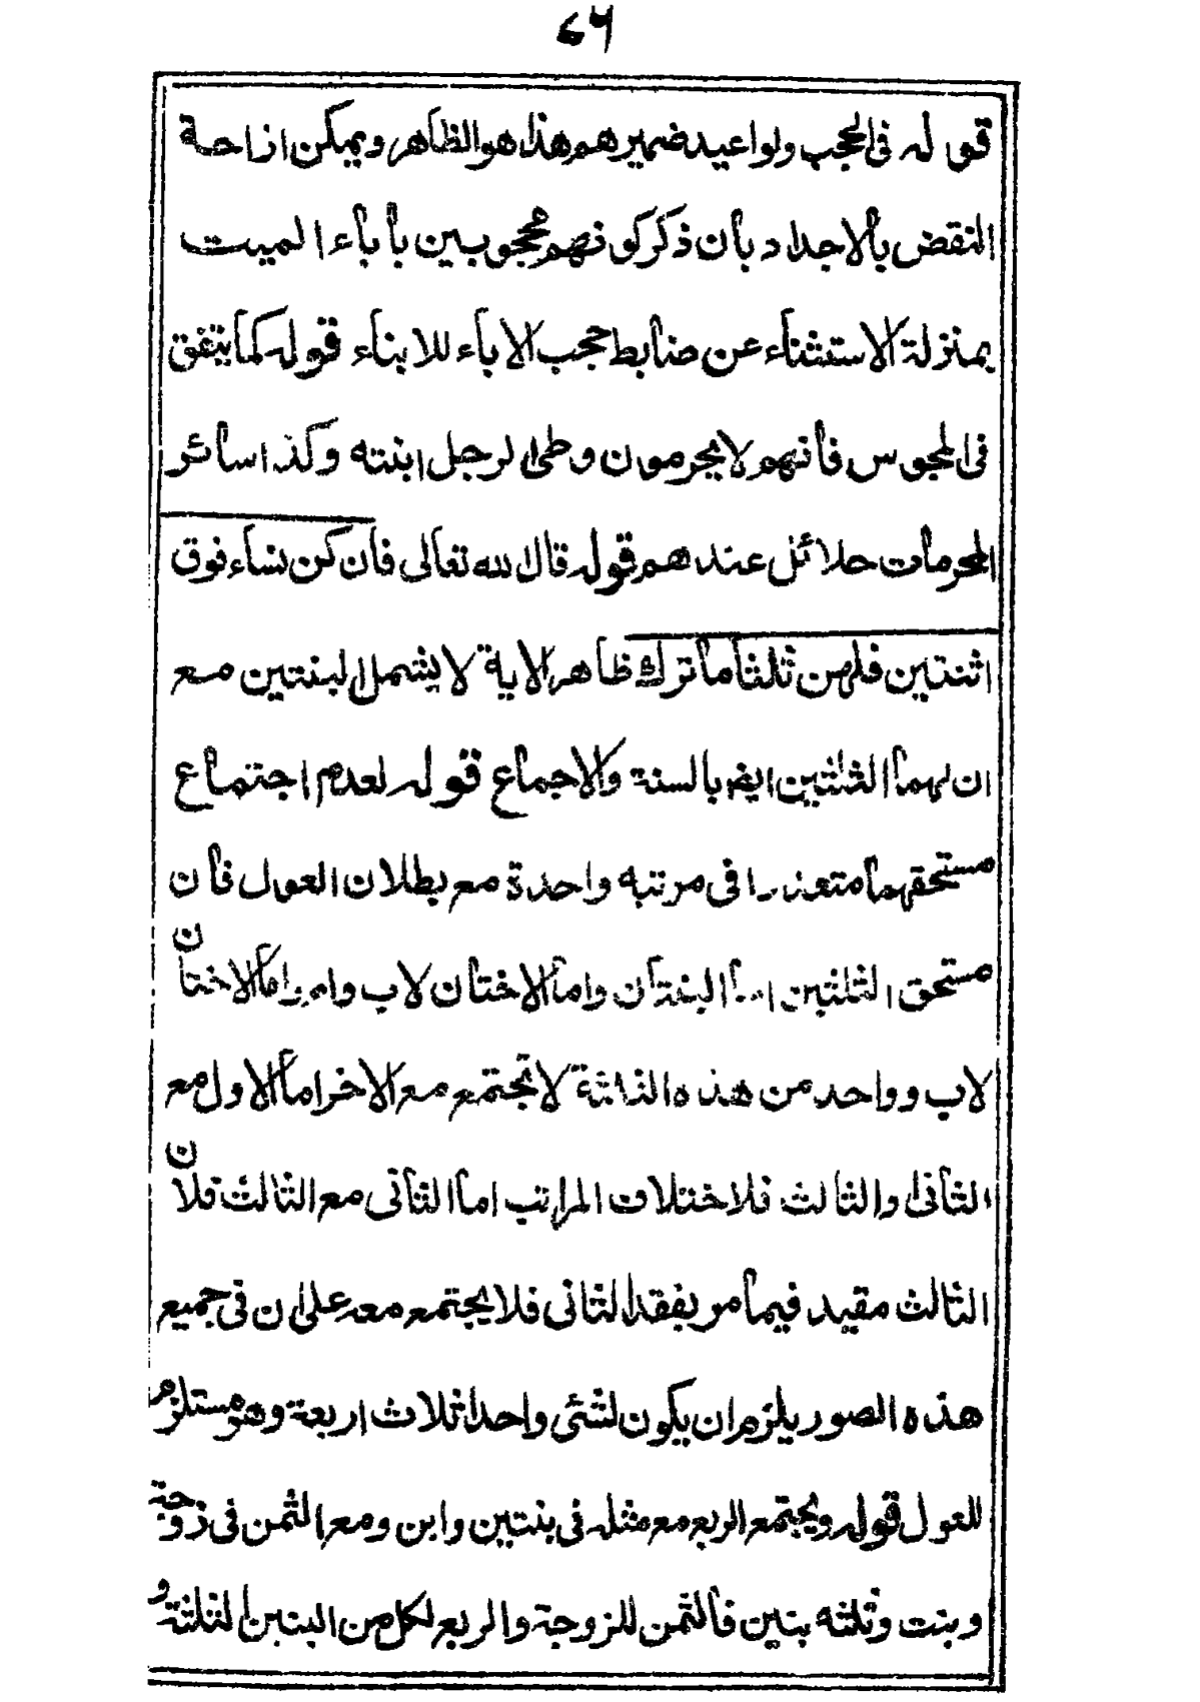 ٤٦
قوله في الحجب ولو اعيد ضميرهم هذا هو الظاهر ويمكن ازاحة
النقض بالاجداد بان ذكر كونهم محجوبين بأباء الميت
بمنزلة الاستثناء عن ضابط حجب الاباء للابناء قوله كما يتفق
في المجوس فانهم لا يحرمون وطى الرجل ابنته وكذا سائر
المحرمات حلائل عندهم قوله قال الله تعالى فان كن نساء فوق
اثنتين فلهن ثلثا ما ترك ظاهر الاية لا يشمل البنتين مع
ان لهما الثلثين ايضا بالسنة والاجماع قوله لعدم اجتماع
مستحقهما متعددا في مرتبه واحدة مع بطلان العول فان
مستحق الثلثين اما البنتان واما الاختان لاب وام واما الاختان
لاب وواحد من هذه الثلثة لا تجتمع مع الاخر اما الاول مع
الثاني والثالث فلاختلاف المراتب اما الثاني مع الثالث فلان
الثالث مقيد فيما مر بفقد الثاني فلا يجتمع معه على ان في جميع
هذه الصور يلزم ان يكون لشئ واحد اثلاث اربعة وهو مستلزم
للعول قوله ويجتمع الربع مع مثله في بنتين وابن ومع الثمن في زوجة
وبنت وثلثه بنين فالثمن للزوجة والربع لكل من البنين الثلثة و